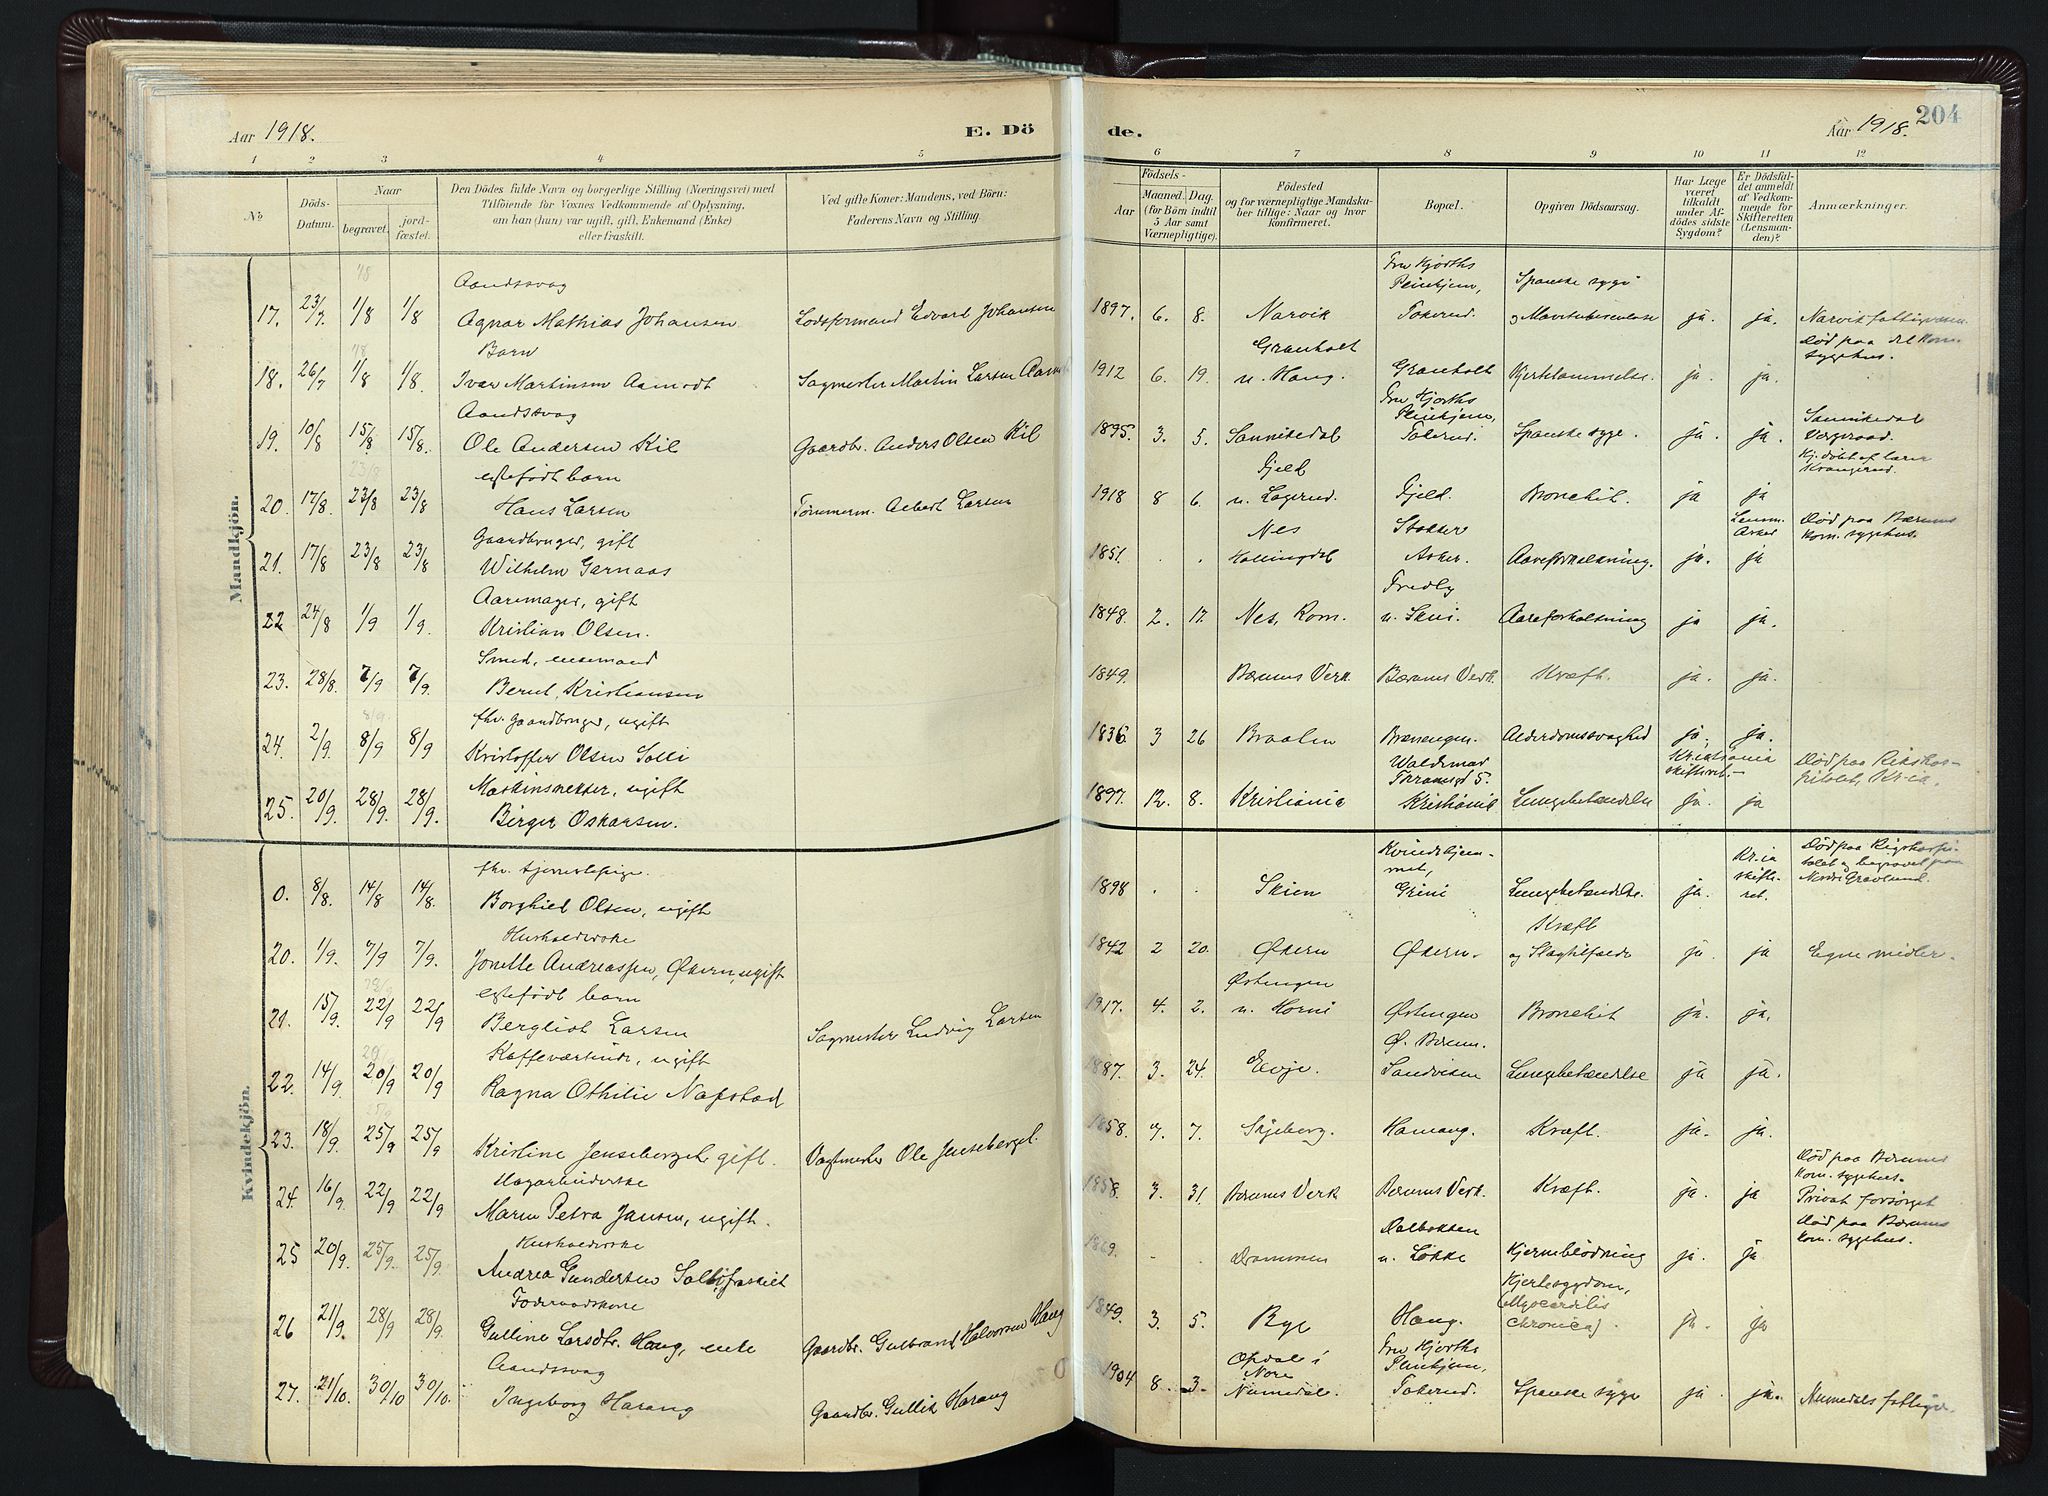 204
Aar 1918.
E. Dö
de.
Aar 1918.
1 2 3 4 5 6 7 8 9 10 11 12
No
Döds-
Datum.
Naar
begravet.
jord-
fæstet.
Den Dödes fulde Navn og borgerlige Stilling (Næringsvei) med
Tilföiende for Voxnes Vedkommende af Oplysning,
om han (hun) var ugift, gift, Enkemand (Enke)
eller fraskilt.
Ved gifte Koner: Mandens, ved Börn:
Faderens Navn og Stilling.
Födsels-
Aar
Maaned. Dag.
(for Börn indtil
5 Aar samt
Værnepligtige).
Födested
og for værnepligtige Mandska-
ber tillige: Naar og hvor
konfirmeret.
Bopæl.
Opgiven Dödsaarsag.
Har Læge
været
tilkaldt
under Af-
dödes sidste
Sygdom?
Er Dödsfal-
det anmeldt
af Vedkom-
mende for
Skifteretten
(Lensman-
den)?
Anmærkninger.
Mandkjön.
Aandssvag Fru Hjorths Pleiehjem, Spanske syge
17. 23/7 1/8 1/8 Agnar Mathias Johansen Lodsformand Edvart Johansen 1897. 6. 8. Narvik Tokerud. ja. ja. Narvik
Barn Granholt Død paa det kom. sygehus.
18. 26/7 1/8 1/8 Ivar Martinsen Aamodt Sagmester Martin Larsen 1912 6. 19. u. Haug. Granholt ja. ja.
Aandssvag Fru Hjorths Pleiehjem, Sannikedal
19. 10/8 15/8 15/8. Ole Andersen Kil Gaardbr. Anders Olsen Kil 1895. 3. 5. Sannikedal Tokerud. Spanske syge. ja. ja. Vergeraad.
egtefødt barn Fjeld Kj. døbt af lærer
20. 17/8. 23/8 23/8 Hans Larsen Tømmerm. Albert Larsen 1918 8 6. u. Lagerud. Fjeld. Bronchit. ja ja
Gaardbruger, gift Nes Stokker Lensm. Asker Død paa Bærums kom. sygehus.
21. 17/8 23/8 23/8 Wilhelm Garnaas 1851. . . Hallingdal Asker. Aareforkalkning. ja. ja
Aaremager, gift Fredly
22 24/8 1/9 1/9. Kristian Olsen. 1848. 2. 12 Nes, Rom. u. Skui. Aareforkalkning ja ja.
Smed, enkemand
23. 28/8. 7/9 7/9. Bernt Kristiansen 1849. Bærums Verk. Bærums Verk. Kræft. ja. ja.
fhv. Gaardbruger, ugift
24. 2/9. 8/9 8/9 Kristoffer Olsen Solli 1836. 3 26 Braaten Alderdomssvaghed ja. ja.
ugift Waldemar Kristiania skifteret. Død paa Rikshospitalet, Kr.ia.
25. 20/9. 28/9. 28/9. Birger Oskarsen. 1897. 12. 8. Kristiania Kristiania Lungebetændelse ja. ja
Kvindekjön.
fhv. tjenestepige. Kvindehjemmet, Kr.ia skifteret. Død paa Rigshospitalet og begravet paa Nordre Gravlund.
0. 8/8. 14/8 14/8. Borghild Olsen, ugift 1898 . . Skien Grini Lungebetændelse. ja.
Husholderske Kræft
20. 1/9. 7/9 7/9. Jonette Andreassen, Økern, ugift 1842 2 20. Økern Økern. og Slagtilfælde ja. ja Egne midler.
egtefødt barn Østengen
21. 15/9. 22/9 22/9 Bergliot Larsen Sagmester Ludvig Larsen 1917. 4. 2. u. Horni Østengen Bronchit ja. ja.
Kaffeværtinde, ugift Ø. Bærum.
22. 14/9. 20/9 20/9 Ragna Othilie Nafstad 1887. 3. 24. Evje. Sandviken Lungebetændelse ja ja.
23. 18/9. 25/9 25/9 Kristine Jenseberget gift. Vagtmester Ole Jenseberget. 1858. 7. 7. Skjeberg. Hamang. Kræft. ja. ja.
Død paa Bærums kom. sygehus.
24. 16/9. 22/9 22/9 Maren Petra Jansen, ugift. 1858. 3. 31. Bærums Verk Bærums Verk. Kræft. ja. ja Privat forsørget
Husholderske Dalbakken Død paa Bærums kom. sygehus.
25 20/9. 25/9. 25/9. Andrea Gundersen fraskilt 1869. . . Drammen u. Løkke Hjerneblödning ja. ja
Föderaadskone Hjertesygdom, (Myocarditis chronica).
26 21/9. 28/9 28/9. Gulline Larsdtr. Haug, enke Gaardbr. Gulbrand Halvorsen Haug 1849. 3. 5. Bye Haug. ja. ja
Aandssvag Opdal i Nore Fru Hjorths Pleiehjem,
27. 21/10. 30/10 30/10. Ingeborg Harang Gaardbr. Gullik Harang 1904 8. 3. Numedal. Tokerud. Spanske syge ja. ja. Numedals